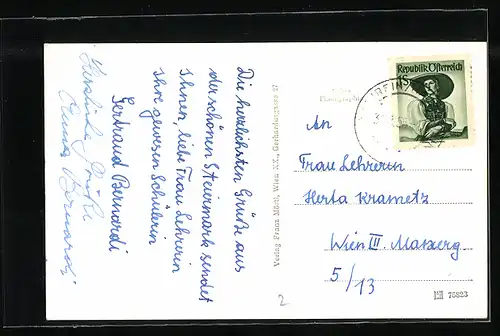 Die herzlichsten Grüße aus
der schönen Steiermark sendet
Ihnen, liebe Frau Lehrerin
Ihre gewesen Schülerin
Gertraud Bernardi
Herzliche Grüße
Anna Bernardi
Verlag Franz Mörtl, Wien XX., Gerhardusgasse 27
Republik Österreich
An
Frau Lehrerin
Herta Krametz
Wien III. Marxerg
5/13
76823
2